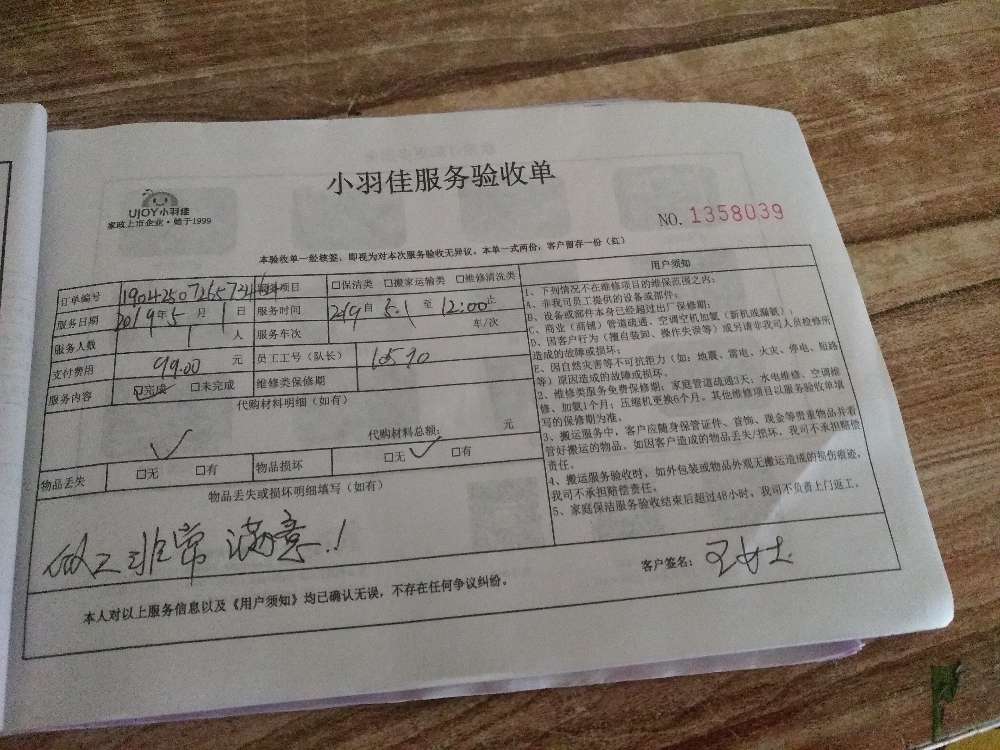 小羽佳服务验收单
UJOY小羽佳
家政上市企业·始于1999
NO. 1358039
本验收单一经核签，即视为对本次服务验收无异议。本单一式两份，客户留存一份（红）
订单编号 项目 □保洁类 □搬家运输类 □维修清洗类
服务日期 2019年5月1日 服务时间 自 5.1 至 12:00止
服务人数 人 服务车次 车/次
支付费用 99.00 元 员工工号（队长） 10570
服务内容 ☑完成 □未完成 维修类保修期
代购材料明细（如有）
代购材料总额： 元
物品丢失 □无 □有 物品损坏 □无 □有
物品丢失或损坏明细填写（如有）
做工非常满意！
本人对以上服务信息以及《用户须知》均已确认无误，不存在任何争议纠纷。
用户须知
1、下列情况不在维修项目的维保范围之内：
A、非我司员工提供的设备或部件；
B、设备或部件本身已经超过出厂保修期；
C、商业（商铺）管道疏通、空调空机加氨（新机或漏氨）；
D、因客户行为（擅自装卸、操作失误等）或另请非我司人员检修所
造成的故障或损坏；
E、因自然灾害等不可抗拒力（如：地震、雷电、火灾、停电、短路
等）原因造成的故障或损坏。
2、维修类服务免费保修期：家庭管道疏通3天；水电维修、空调维
修、加氨1个月；压缩机更换6个月。其他维修项目以服务验收单填
写的保修期为准。
3、搬运服务中，客户应随身保管证件、首饰、现金等贵重物品并看
管好搬运的物品，如因客户造成的物品丢失/损坏，我司不承担赔偿
责任。
4、搬运服务验收时，如外包装或物品外观无搬运造成的损伤痕迹，
我司不承担赔偿责任。
5、家庭保洁服务验收结束后超过48小时，我司不负责上门返工。
客户签名：王女士